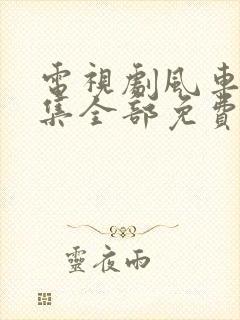 電視劇風車
集全部免費
靈夜雨